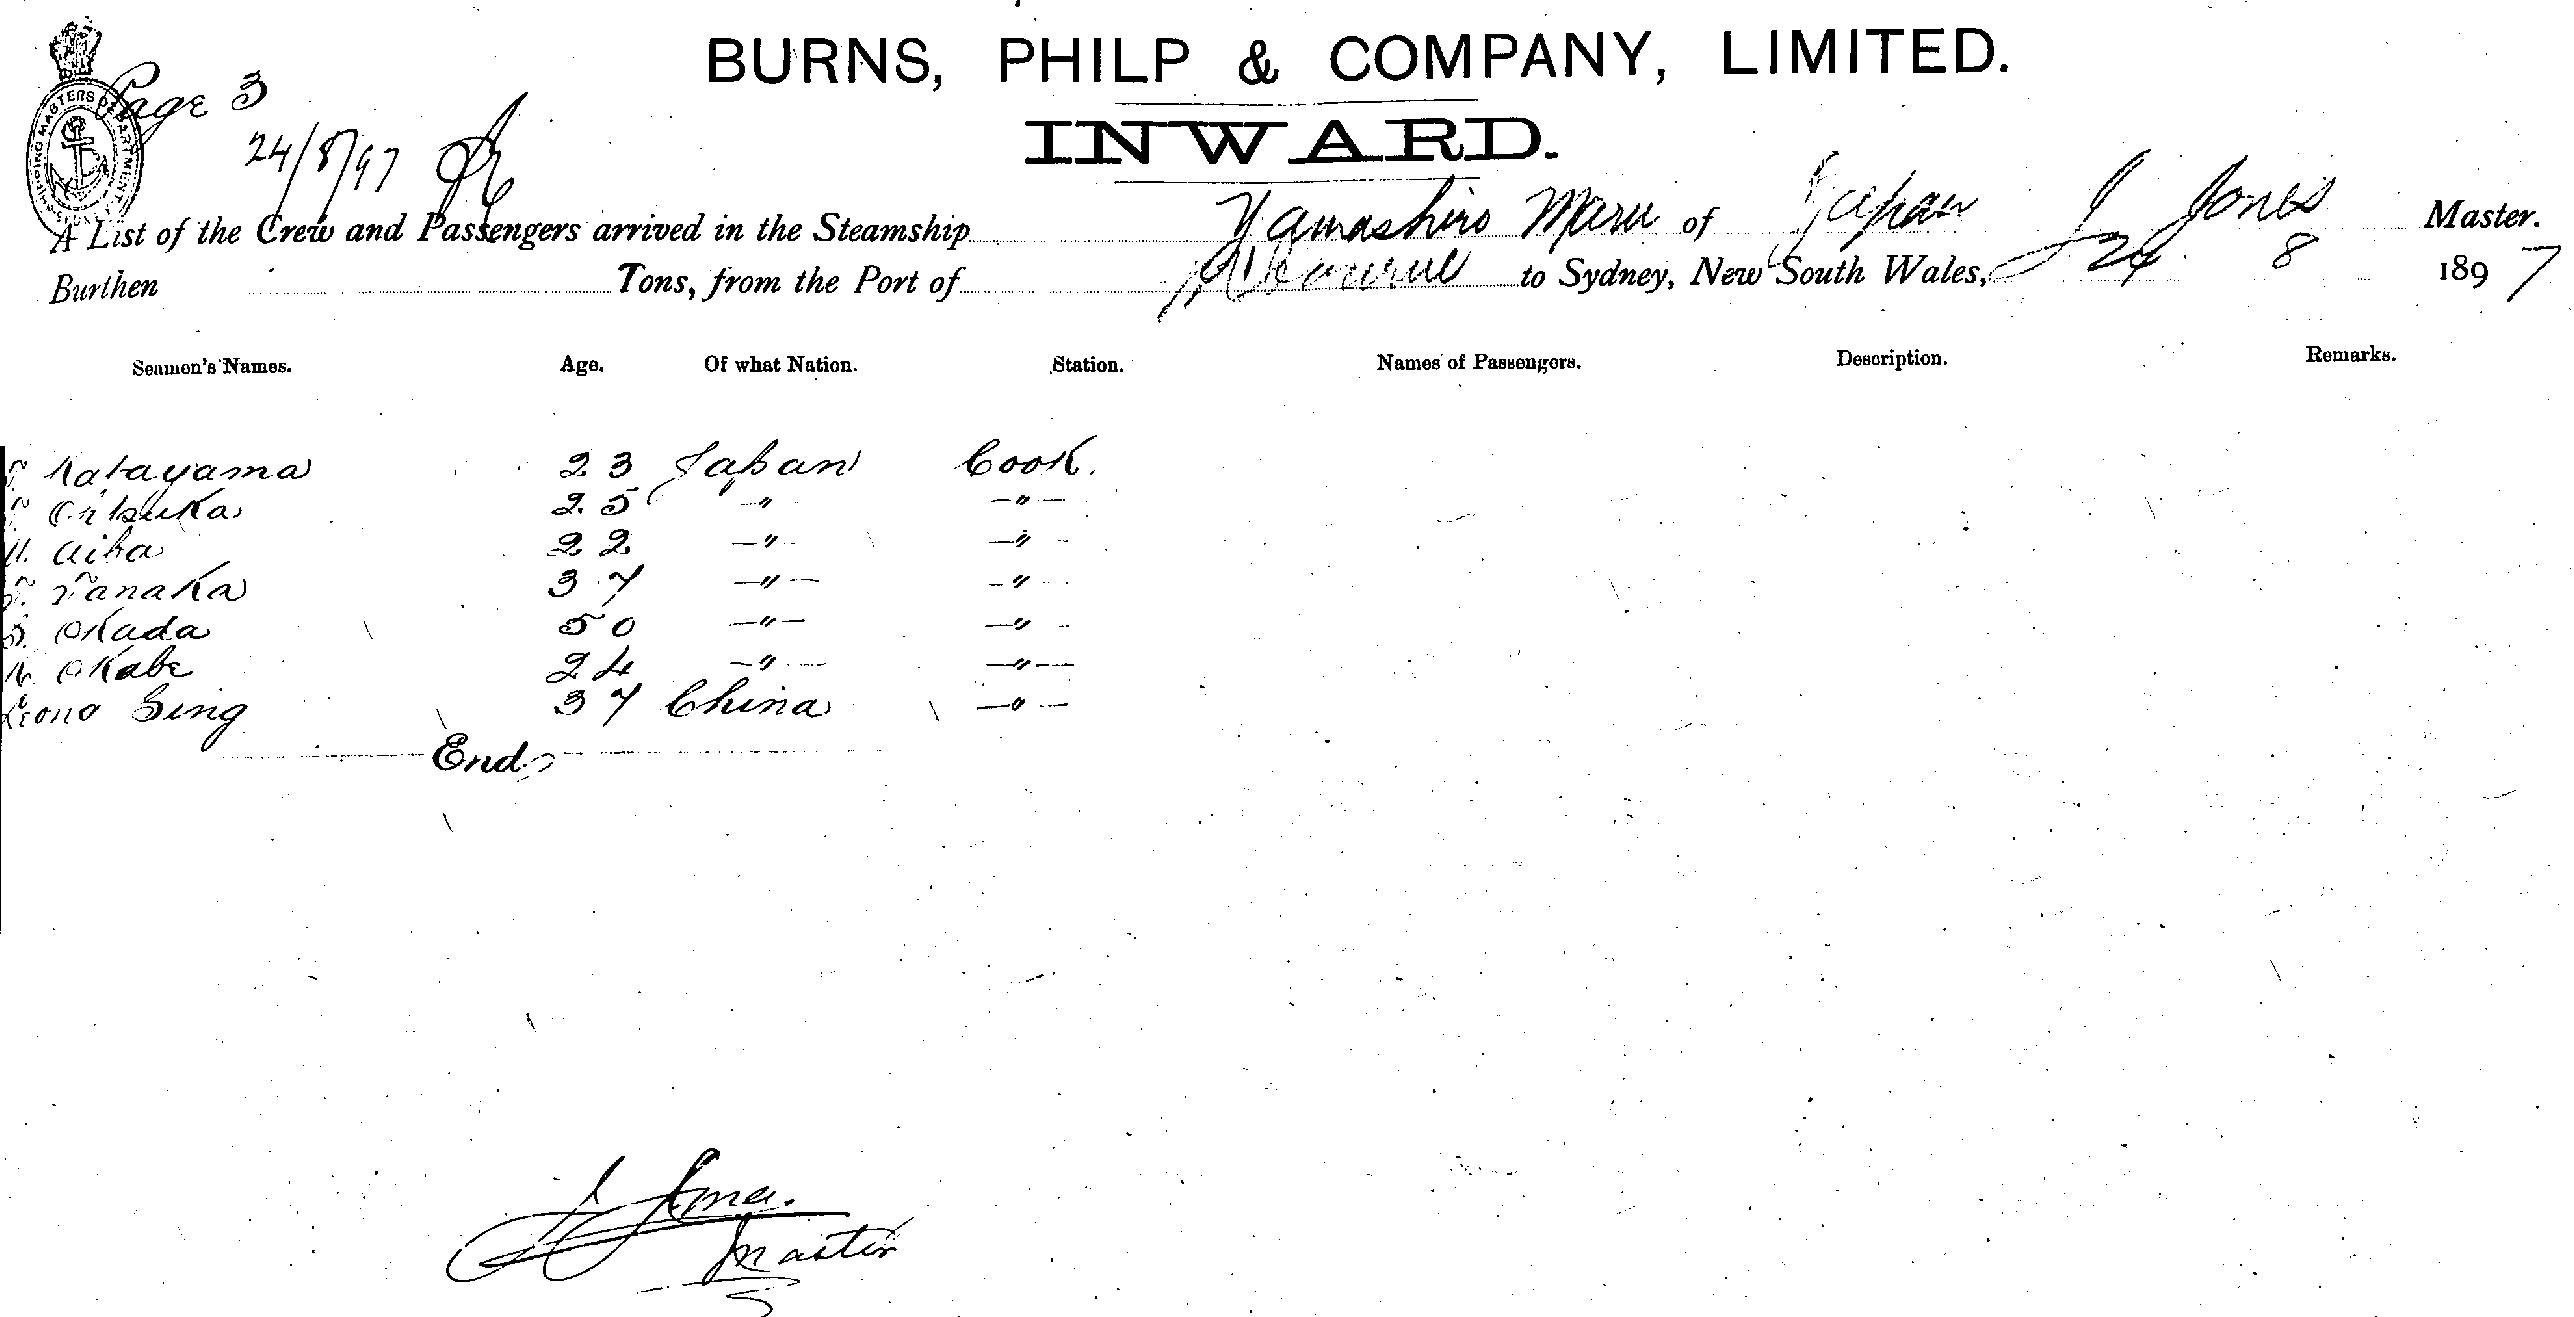 BURNS, PHILP & COMPANY, LIMITED.
Page 3
24/8/97
INWARD.
A List of the Crew and Passengers arrived in the Steamship Yamashiro Maru of Japan J Jones Master.
Burthen Tons, from the Port of to Sydney, New South Wales, 24 8 1897
Seamen's Names. Age. Of what Nation. Station. Names of Passengers. Description. Remarks.
T. Katayama 23 Japan Cook.
25 -"- -"-
Aiba 22 -"- -"-
T. Tanaka 37 -"- -"-
S. Okada 50 -"- -"-
Okabe 24 -"- -"-
Leong Sing 37 China -"-
End
J Jones.
Master